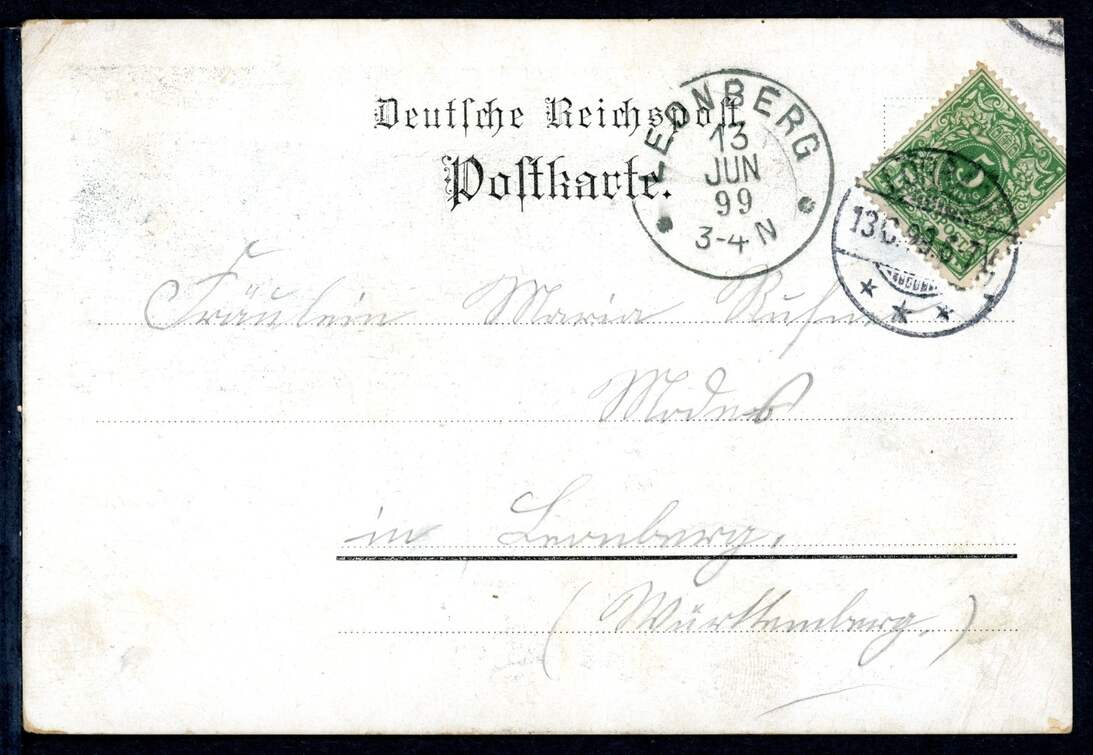 Deutsche Reichspost.
Postkarte.
LEONBERG
13
JUN
99
3-4 N
5
13.6.99.
Fräulein Maria
Modes
in Leonberg.
(Württemberg.)